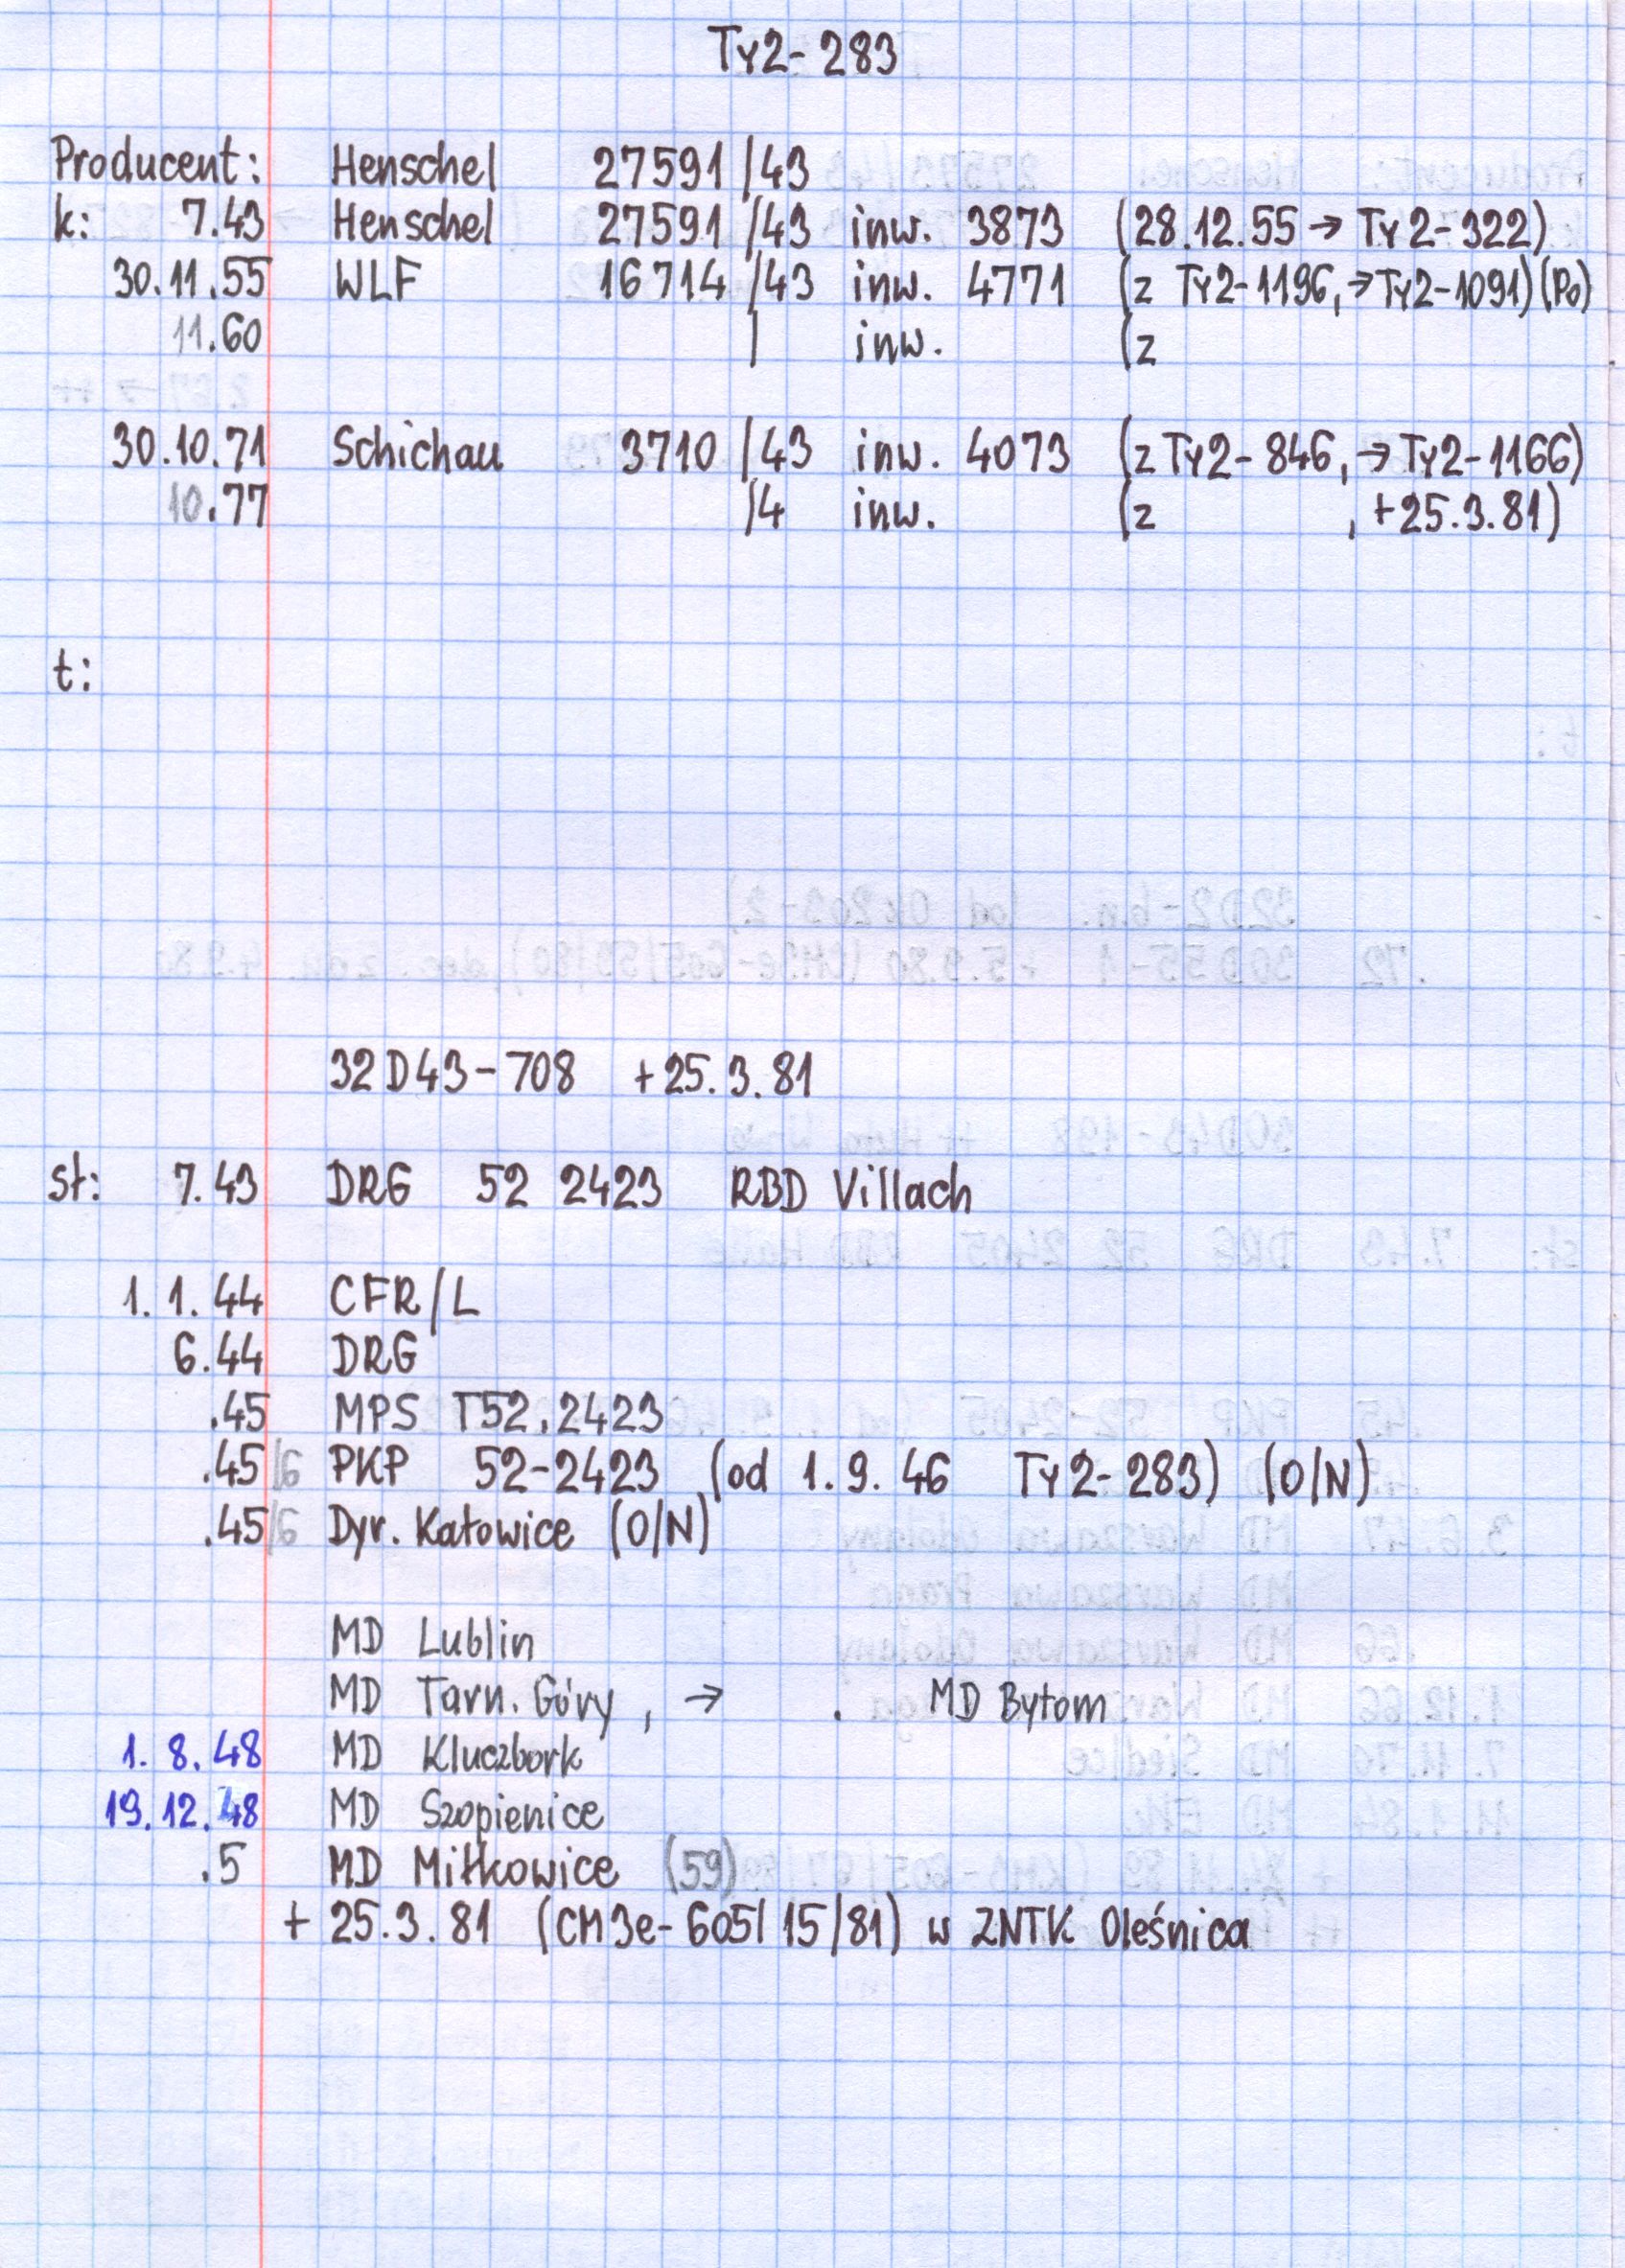 Ty2-283
Producent: Henschel 27591/43
k: 7.43 Henschel 27591/43 inw. 3873 (28.12.55 → Ty2-322)
30.11.55 WLF 16714/43 inw. 4771 (z Ty2-1196, → Ty2-1091) (Po)
11.60 / inw. (z
30.10.71 Schichau 3710/43 inw. 4073 (z Ty2-846, → Ty2-1166)
10.77 /4 inw. (z , +25.3.81)
t:
32D43-708 +25.3.81
st: 7.43 DRG 52 2423 RBD Villach
1.1.44 CFR/L
6.44 DRG
.45 MPS T52.2423
.45/6 PKP 52-2423 (od 1.9.46 Ty2-283) (O/N)
.45/6 Dyr. Katowice (O/N)
MD Lublin
MD Tarn. Góry, → . MD Bytom
1.8.48 MD Kluczbork
19.12.48 MD Szopienice
.5 MD Miłkowice (59)
+ 25.3.81 (CM3e-605/15/81) w ZNTK Oleśnica